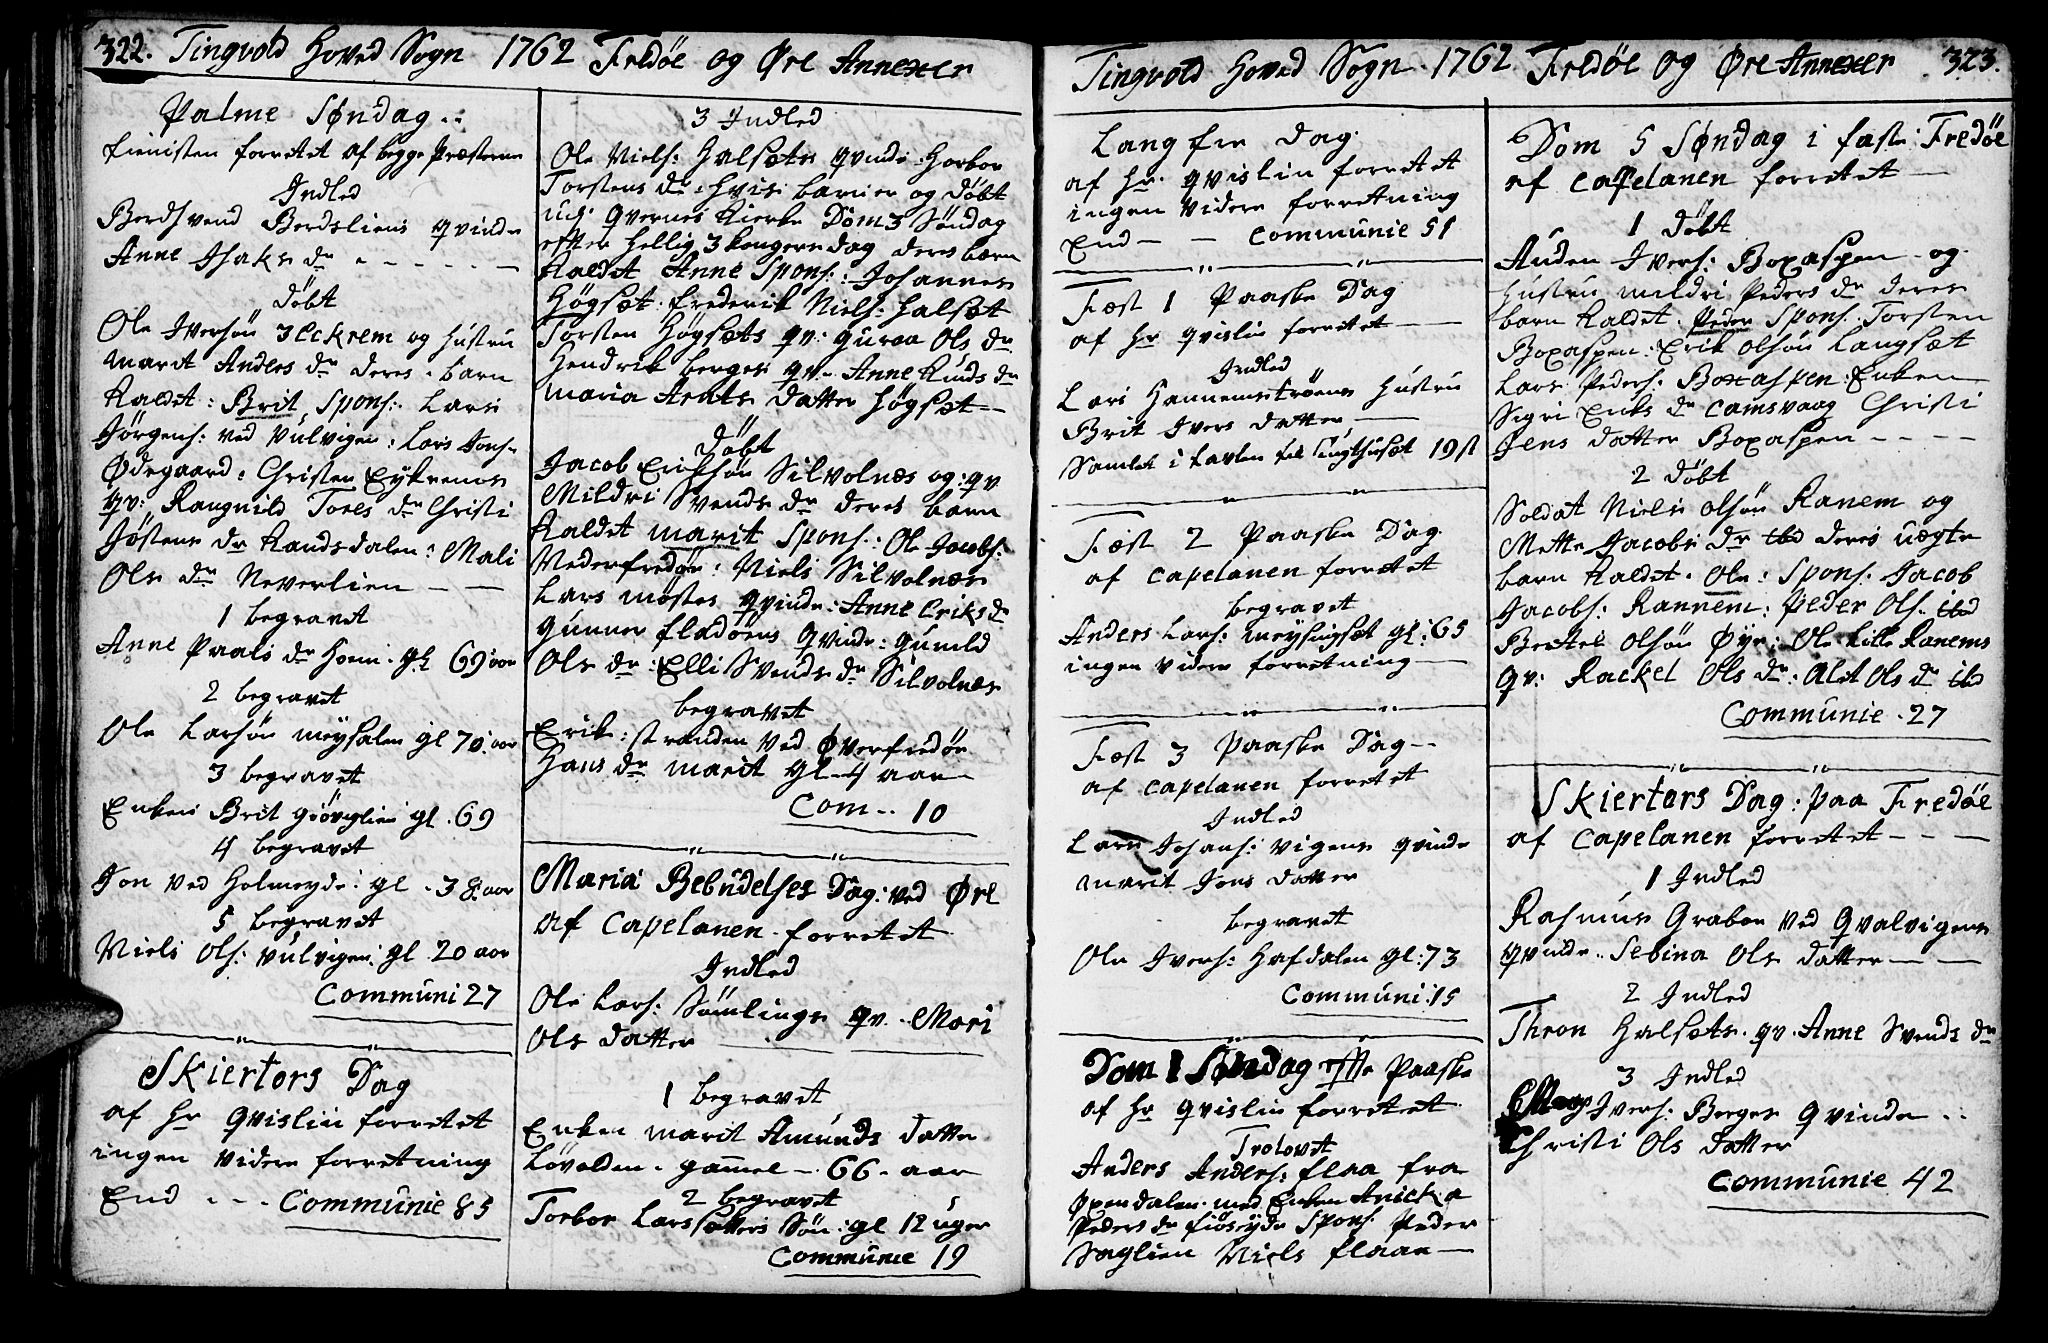 322. Tingvold Hoved Sogn 1762 Fredöe og Øre Annexer
Palme Søndag
tienisten forrettet af begge Præsterne
Indled
Berdsvend Berdsliens qvinde
Anne Isaks dr
döbt
Ole Iversön Eckrem og hustru
maret Anders dr deres barn
Kaldet: Brit, Spons: Lars
Jörgens: ved Vulvigen: Lars Jons:
Ødegaard: Christen Eykrenes
qv: Rangnild Tores dr Christi
Jöstens dr Kandsdalen: Mali
Ols dr Neverlien
1 begravet
Anne Paals dr Hom: gl 69 aar
2 begravet
Ole Larsön meysalen gl 70: aar
3 begravet
Enken Brit gl. 69
4 begravet
Jon ved Holmeyde: gl. 38: aar
5 begravet
Niels Ols: Vulvigen: gl 20 aar
Communi 27
Skiertors Dag
af hr qvislin forrettet
ingen videre forretning
End - - - Communie 85
3 Indled
Ole Niels: Halsets qvinde: Horbor
Torstens dr: hvis barn er og döbt
udi Qvernes Kierke Dom 3 Söndag
efter hellig 3 kongers dag deres barn
Kaldet Anne Spons: Johannes
Högset. frederik Niels: Halset
Torsten Högsets qv: guroa Ols dr
Hendrik berges qv. Anne Knuds dr
maria Arnts datter högset
döbt
Jacob Eriksön Silvolnæs og: qv
Mildri Svends dr deres barn
Kaldet marit Spons: Ole Jacobs:
Nederfredöe: Niels Silvolnæs
Lars möstes qvinde: Anne Eriks dr
gunner fladöens qvinde: gunild
Ols dr: Elli Svends dr Silvolnæs
begravet
Erik: stranden ved Øverfredöe
Hans dr marit gl - 4 aar
Com - 10
Mariæ Bebudelses Dag: ved Øre
af Capelanen forrettet
Indled
Ole Lars: Sömlings qv. Mari
Ols datter
1 begravet
Enken marit Amunds datter
Lövolden. gammel - 66. aar
2 begravet
Torbor Lars sætters Sön: gl 12 uger
Communie 19
Tingvold Hoved Sogn 1762 Fredöe og Øre Annexer 323.
Langfre Dag
af hr. qvislin forrettet
ingen videre forretning
End - - Communie 51
Fæst 1 Paaske Dag
af hr qvislin forrettet
Indled
Lars Hannemströmens hustru
Brit Ivers datter
Samlet i tavlen til Tugthuset 19 s
Fæst 2 Paaske Dag
af Capelanen forrettet
begravet
Anders Lars: meysingset gl: 65
ingen videre forretning
Fæst 3 Paaske Dag
af Capelanen forrettet
Indled
Lars Johans: vigens qvinde
marit Jens datter
begravet
Ole Ivers: Hafdalen gl: 73
Communi: 15
Dom 1 Søndag efter Paaske
af hr qvislin forrettet
Trolovet
Anders Anders: flaa fra
Öpendalen. med Enken Anicka
Peders dr fiöseyde Spons: Peder
Soglien Niels flaae
Dom 5 Søndag i faste: Fredöe
af Capelanen forrettet
1 döbt
Auden Ivers: Boxaspen og
hustru mildri Peders dr deres
barn Kaldet. Peder Spons: Torsten
Boxaspen: Erik Olsön Langset
Lars Peders: Boxaspen: Enken
Sigri Eriks dr Camsvaag Christi
Jens datter Boxaspen
2 döbt
Soldat Niels Olsön Ranem og
Mette Jacobs dr ibd deres uægte
barn Kaldet. Ole: Spons: Jacob
Jacobs: Rannem: Peder Ols. ibd
Bertel Olsön Øye: Ole Lille Ranems
qv: Rackel Ols dr: Alet Ols dr ibd
Communie. 27
Skiertors Dag: paa Fredöe
af Capelanen forrettet
1 Indled
Rasmus Graboe ved Qvalvigens
qvinde. Sebina Ols datter
2 Indled
Thron Halsets. qv. Anne Svends dr
3 Indled
Ivers: Berges qvinde
Christi Ols datter
Communie 42